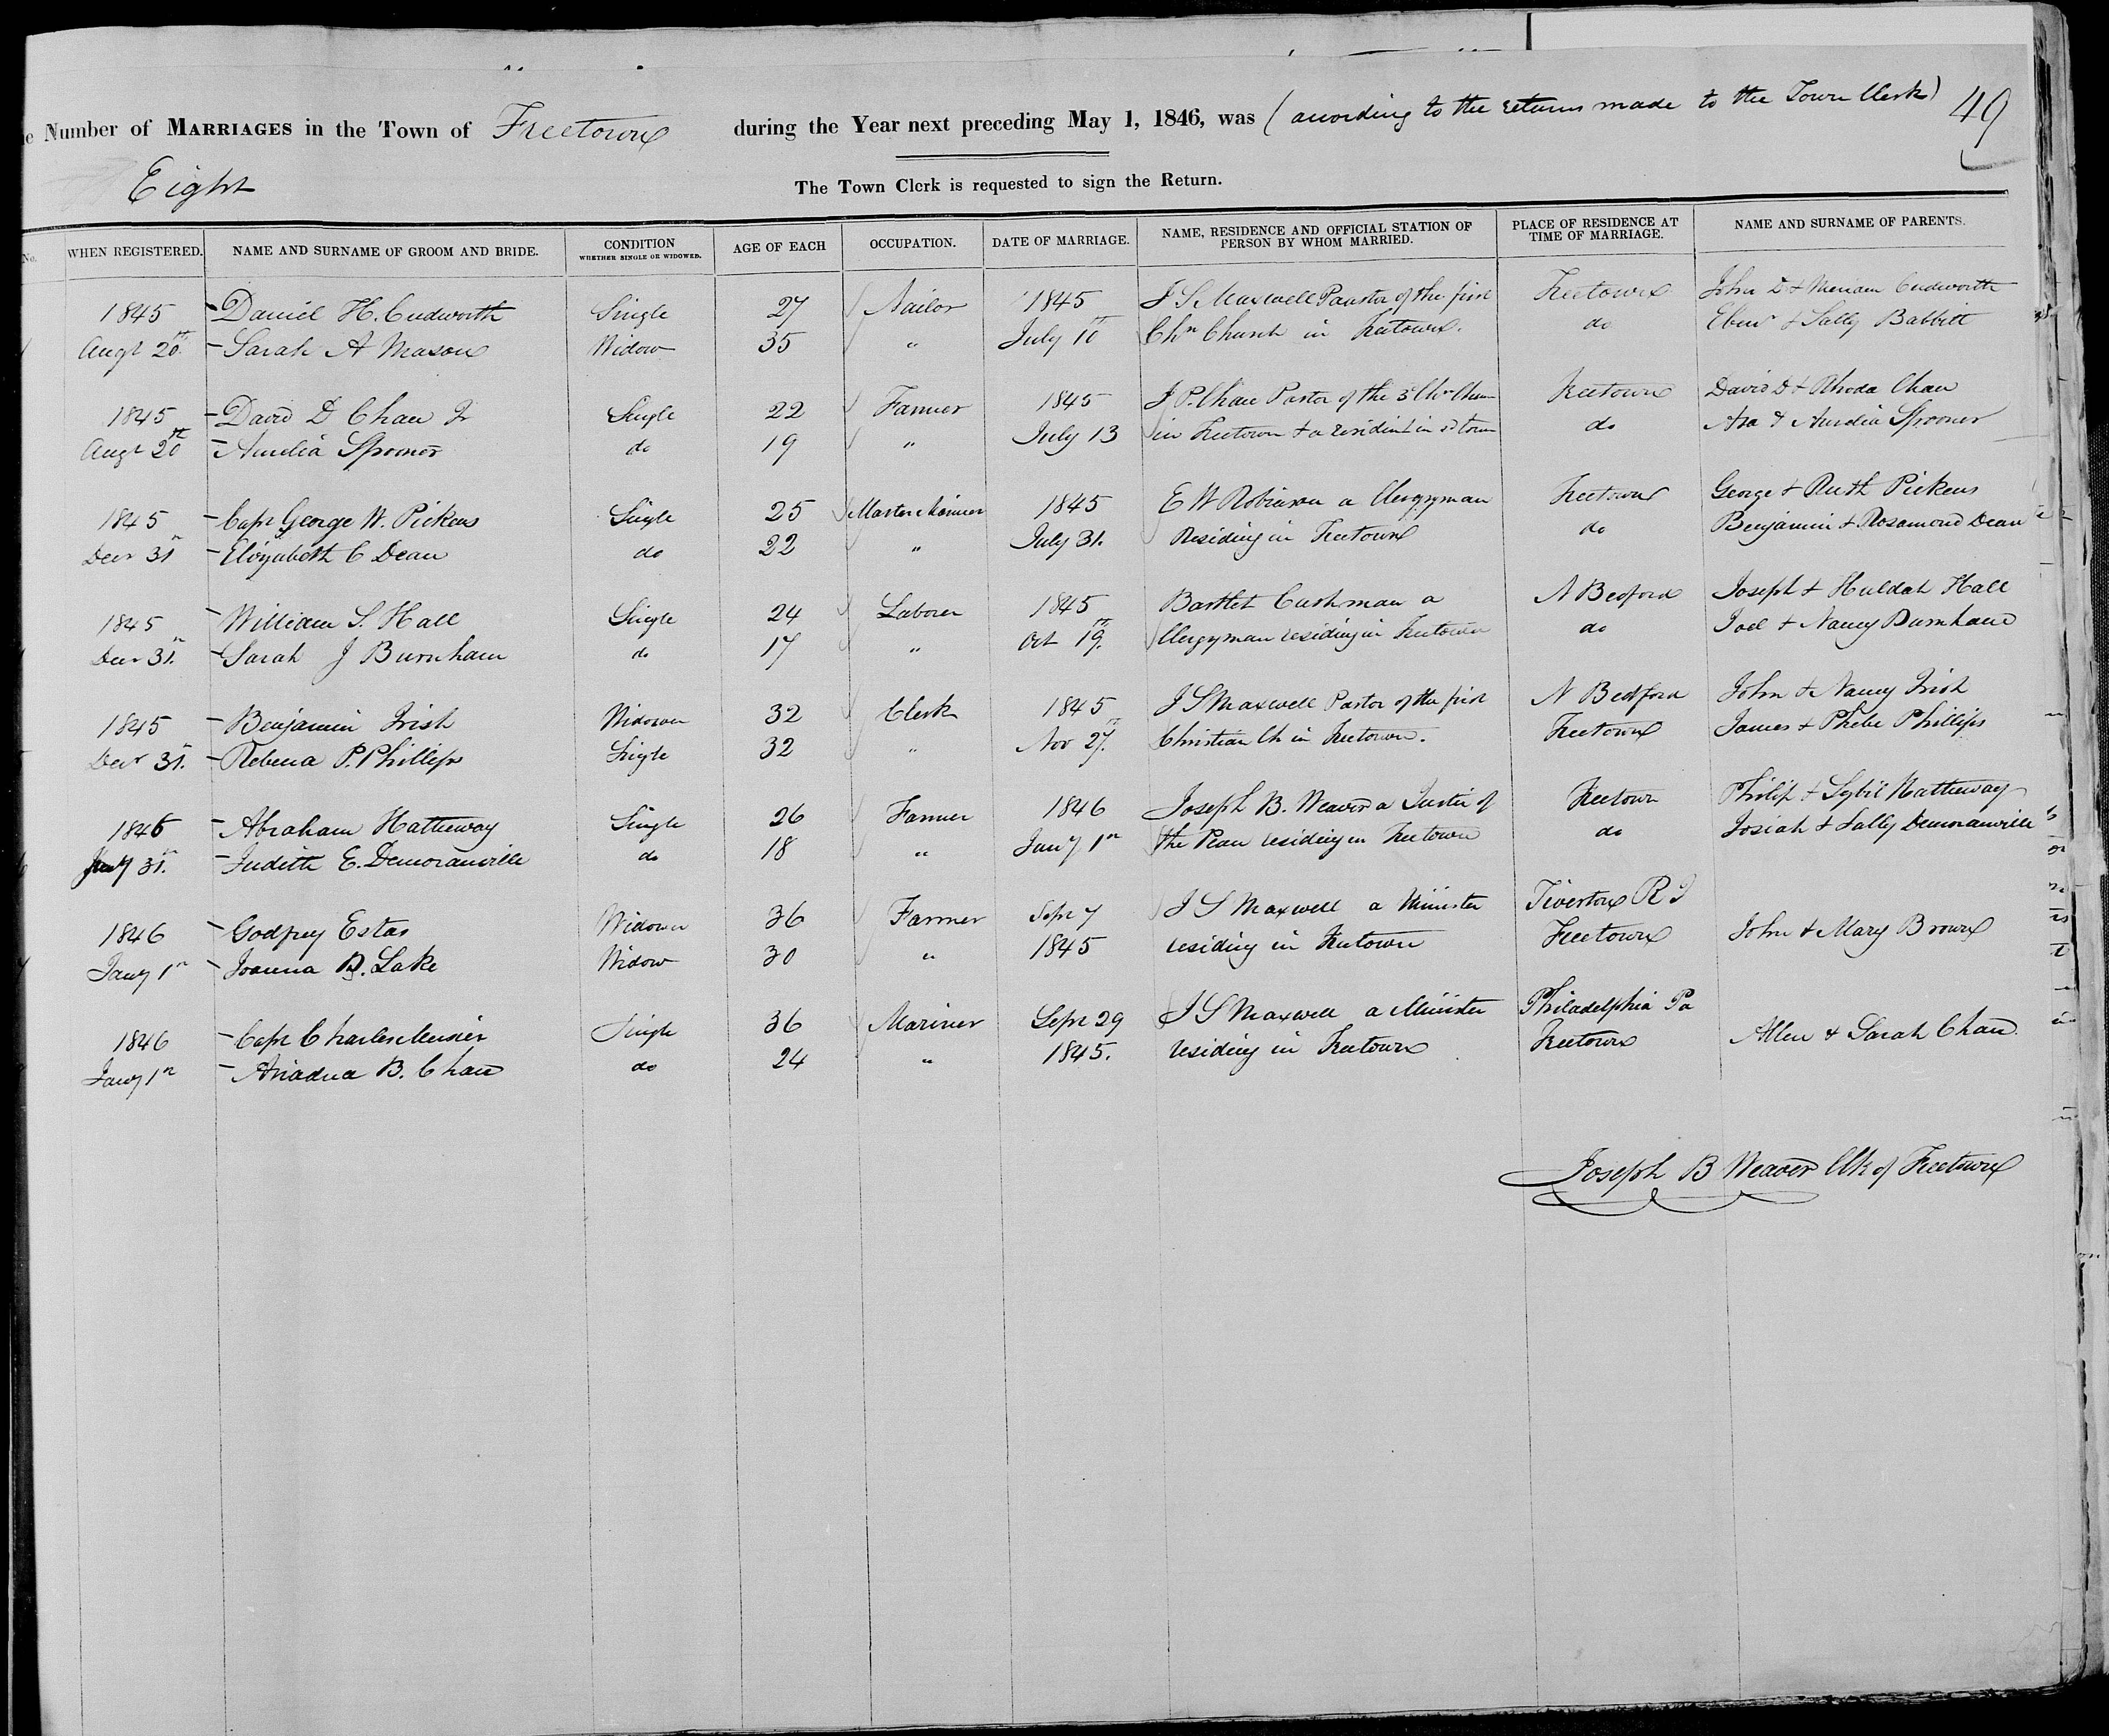 e Number of MARRIAGES in the Town of Freetown during the Year next preceding May 1, 1846, was (acording to the returns made to the Town Clerk) 49
Eight
The Town Clerk is requested to sign the Return.
No. WHEN REGISTERED. NAME AND SURNAME OF GROOM AND BRIDE. CONDITION WHETHER SINGLE OR WIDOWED. AGE OF EACH OCCUPATION. DATE OF MARRIAGE. NAME, RESIDENCE AND OFFICIAL STATION OF PERSON BY WHOM MARRIED. PLACE OF RESIDENCE AT TIME OF MARRIAGE. NAME AND SURNAME OF PARENTS.
1845 Daniel H. Cudworth Single 27 Nailor 1845 J S. Maxwell Paustor of the first Freetown John D & Meriam Cudworth
Augt 20th Sarah A Mason Widow 35 " July 10th Chn Church in Freetown. do Ebenr & Sally Babbitt
1845 David D Chace Jr Single 22 Farmer 1845 J P. Chace Pastor of the 3d Chn Freetown David D & Rhoda Chace
Augt 20th Aurelia Spooner do 19 " July 13 in Freetown & a resident in sd town do Asa & Aurelia Spooner
1845 Capt George W. Pickens Single 25 Master Mariner 1845 E W Robinson a Clergyman Freetown George & Ruth Pickens
Decr 31st Elizabeth C Dean do 22 " July 31. Residing in Freetown do Benjamin & Rosamond Dean
1845 William S. Hall Single 24 Laborer 1845 Bartlet Cushman a N Bedford Joseph & Huldah Hall
Decr 31st. Sarah J Burnham do 17 " Oct 19th. Clergyman residing in Freetown do Joel & Nancy Burnham
1845 Benjamin Irish Widower 32 Clerk 1845 J S Maxwell Pastor of the first N Bedford John & Nancy Irish
Decr 31st. Rebecca P. Phillips Single 32 " Nov 27th. Christian Ch in Freetown. Freetown James & Phebe Phillips
1846 Abraham Hatheway Single 26 Farmer 1846 Joseph B. Weaver a Justice of Freetown Philip & Sybil Hatheway
Jany 31st. Judith E. Demoranville do 18 " Jany 1st the Peace residing in Freetown do Josiah & Sally Demoranville
1846 Godfrey Estas Widower 36 Farmer Sept 7 J S Maxwell a Minister Tiverton R I
Jany 1st Joanna B. Lake Widow 30 " 1845 residing in Freetown Freetown John & Mary Brown
1846 Capt Charles Single 36 Mariner Sept 29 J S Maxwell a Minister Philadelphia Pa
Jany 1st Ariadna B. Chace do 24 " 1845. residing in Freetown Freetown Allen & Sarah Chace
Joseph B Weaver Clk of Freetown